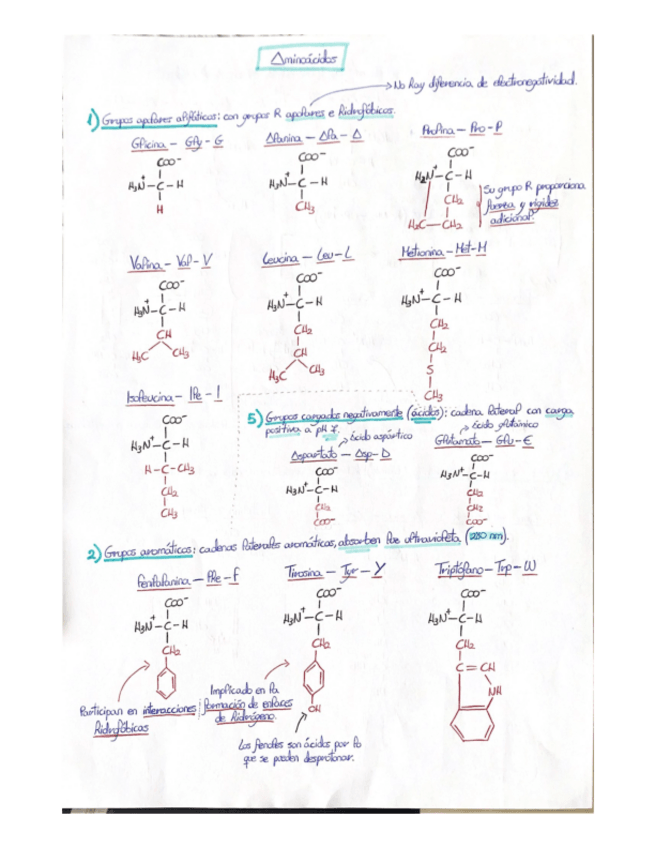 Aminoácidos
No hay diferencia de electronegatividad.
1) Grupos apolares alifáticos: con grupos R apolares e hidrofóbicos.
Glicina – Gly – G
Alanina – Ala – A
Prolina – Pro – P
COO⁻
H₃N⁺–C–H
H
COO⁻
H₃N⁺–C–H
CH₃
COO⁻
H₂N⁺–C–H
CH₂
H₂C–CH₂
Su grupo R proporciona
forma y rigidez
adicional.
Valina – Val – V
Leucina – Leu – L
Metionina – Met – M
COO⁻
H₃N⁺–C–H
CH
H₃C CH₃
COO⁻
H₃N⁺–C–H
CH₂
CH
H₃C CH₃
COO⁻
H₃N⁺–C–H
CH₂
CH₂
S
CH₃
Isoleucina – Ile – I
COO⁻
H₃N⁺–C–H
H–C–CH₃
CH₂
CH₃
5) Grupos cargados negativamente (ácidos): cadena lateral con carga
positiva a pH 7.
ácido aspártico
ácido glutámico
Aspartato – Asp – D
Glutamato – Glu – E
COO⁻
H₃N⁺–C–H
CH₂
COO⁻
COO⁻
H₃N⁺–C–H
CH₂
CH₂
COO⁻
2) Grupos aromáticos: cadenas laterales aromáticas, absorben luz ultravioleta (280 nm).
Fenilalanina – Phe – F
Tirosina – Tyr – Y
Triptófano – Trp – W
COO⁻
H₃N⁺–C–H
CH₂
COO⁻
H₃N⁺–C–H
CH₂
OH
COO⁻
H₃N⁺–C–H
CH₂
C=CH
NH
Participan en interacciones
hidrofóbicas
Implicado en la
formación de enlaces
de hidrógeno.
Los fenoles son ácidos por lo
que se pueden desprotonar.